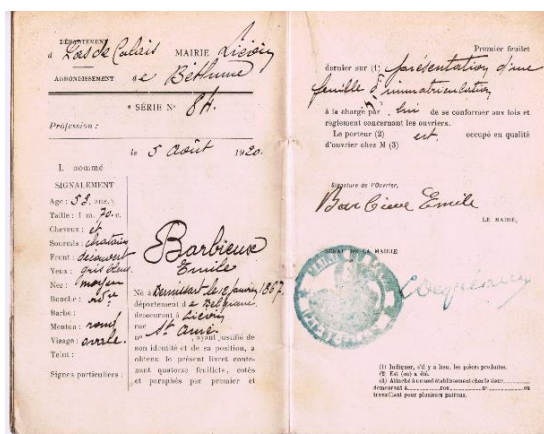 DÉPARTEMENT
d Pas de Calais
MAIRIE Liévin
ARRONDISSEMENT de Béthune
* SÉRIE N° 84.
Profession :
le 5 Août 1920.
I. nommé
SIGNALEMENT
Age : 53 ans.
Taille : 1 m. 70 c.
Cheveux : et
Sourcils : chatain
Front : découvert
Yeux : gris bleu
Nez : moyen
Bouche :
Barbe :
Menton : rond
Visage : ovale
Teint :
Signes particuliers :
Barbieux
Emile
Né à le janvier 1867.
département d e Belgique
demeurant à Liévin
rue St Amé
n° , ayant justifié de
son identité et de sa position, a
obtenu le présent livret conte-
nant quatorze feuillets, cotés
et paraphés par premier et
Premier feuillet
dernier sur (1) présentation d'une
feuille d'immatriculation
à la charge par lui de se conformer aux lois et
règlement concernant les ouvriers.
Le porteur (2) est occupé en qualité
d'ouvrier chez M (3)
Signature de l'Ouvrier,
Barbieux Emile
LE MAIRE,
SCEAU DE LA MAIRIE
(1) Indiquer, s'il y a lieu, les pièces produites.
(2) Est (ou) a été.
(3) Attaché à un seul établissement chez le sieur
demeurant à rue n° ou
travaillant pour plusieurs patrons.